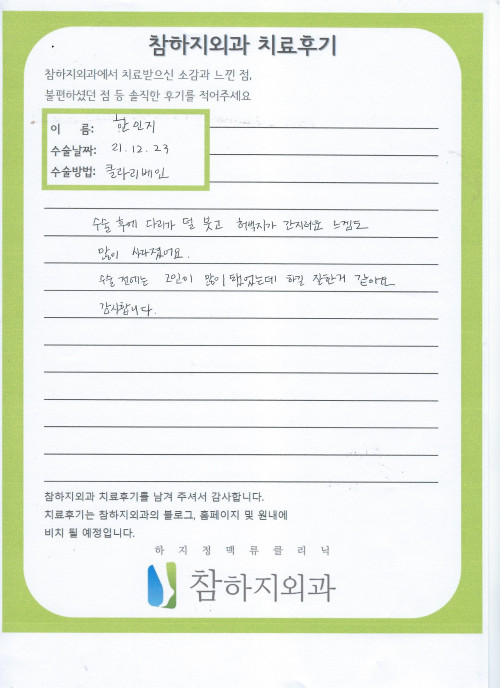 참하지외과 치료후기
참하지외과에서 치료받으신 소감과 느낀 점,
불편하셨던 점 등 솔직한 후기를 적어주세요
이 름: 한인지
수술날짜: 21. 12. 23
수술방법: 클라리베인
수술 후에 다리가 덜 붓고 허벅지가 간지러운 느낌도
많이 사라졌어요.
수술 전에는 고민이 많이 됐었는데 하길 잘한거 같아요
감사합니다.
참하지외과 치료후기를 남겨 주셔서 감사합니다.
치료후기는 참하지외과의 블로그, 홈페이지 및 원내에
비치 될 예정입니다.
하지정맥류클리닉
참하지외과